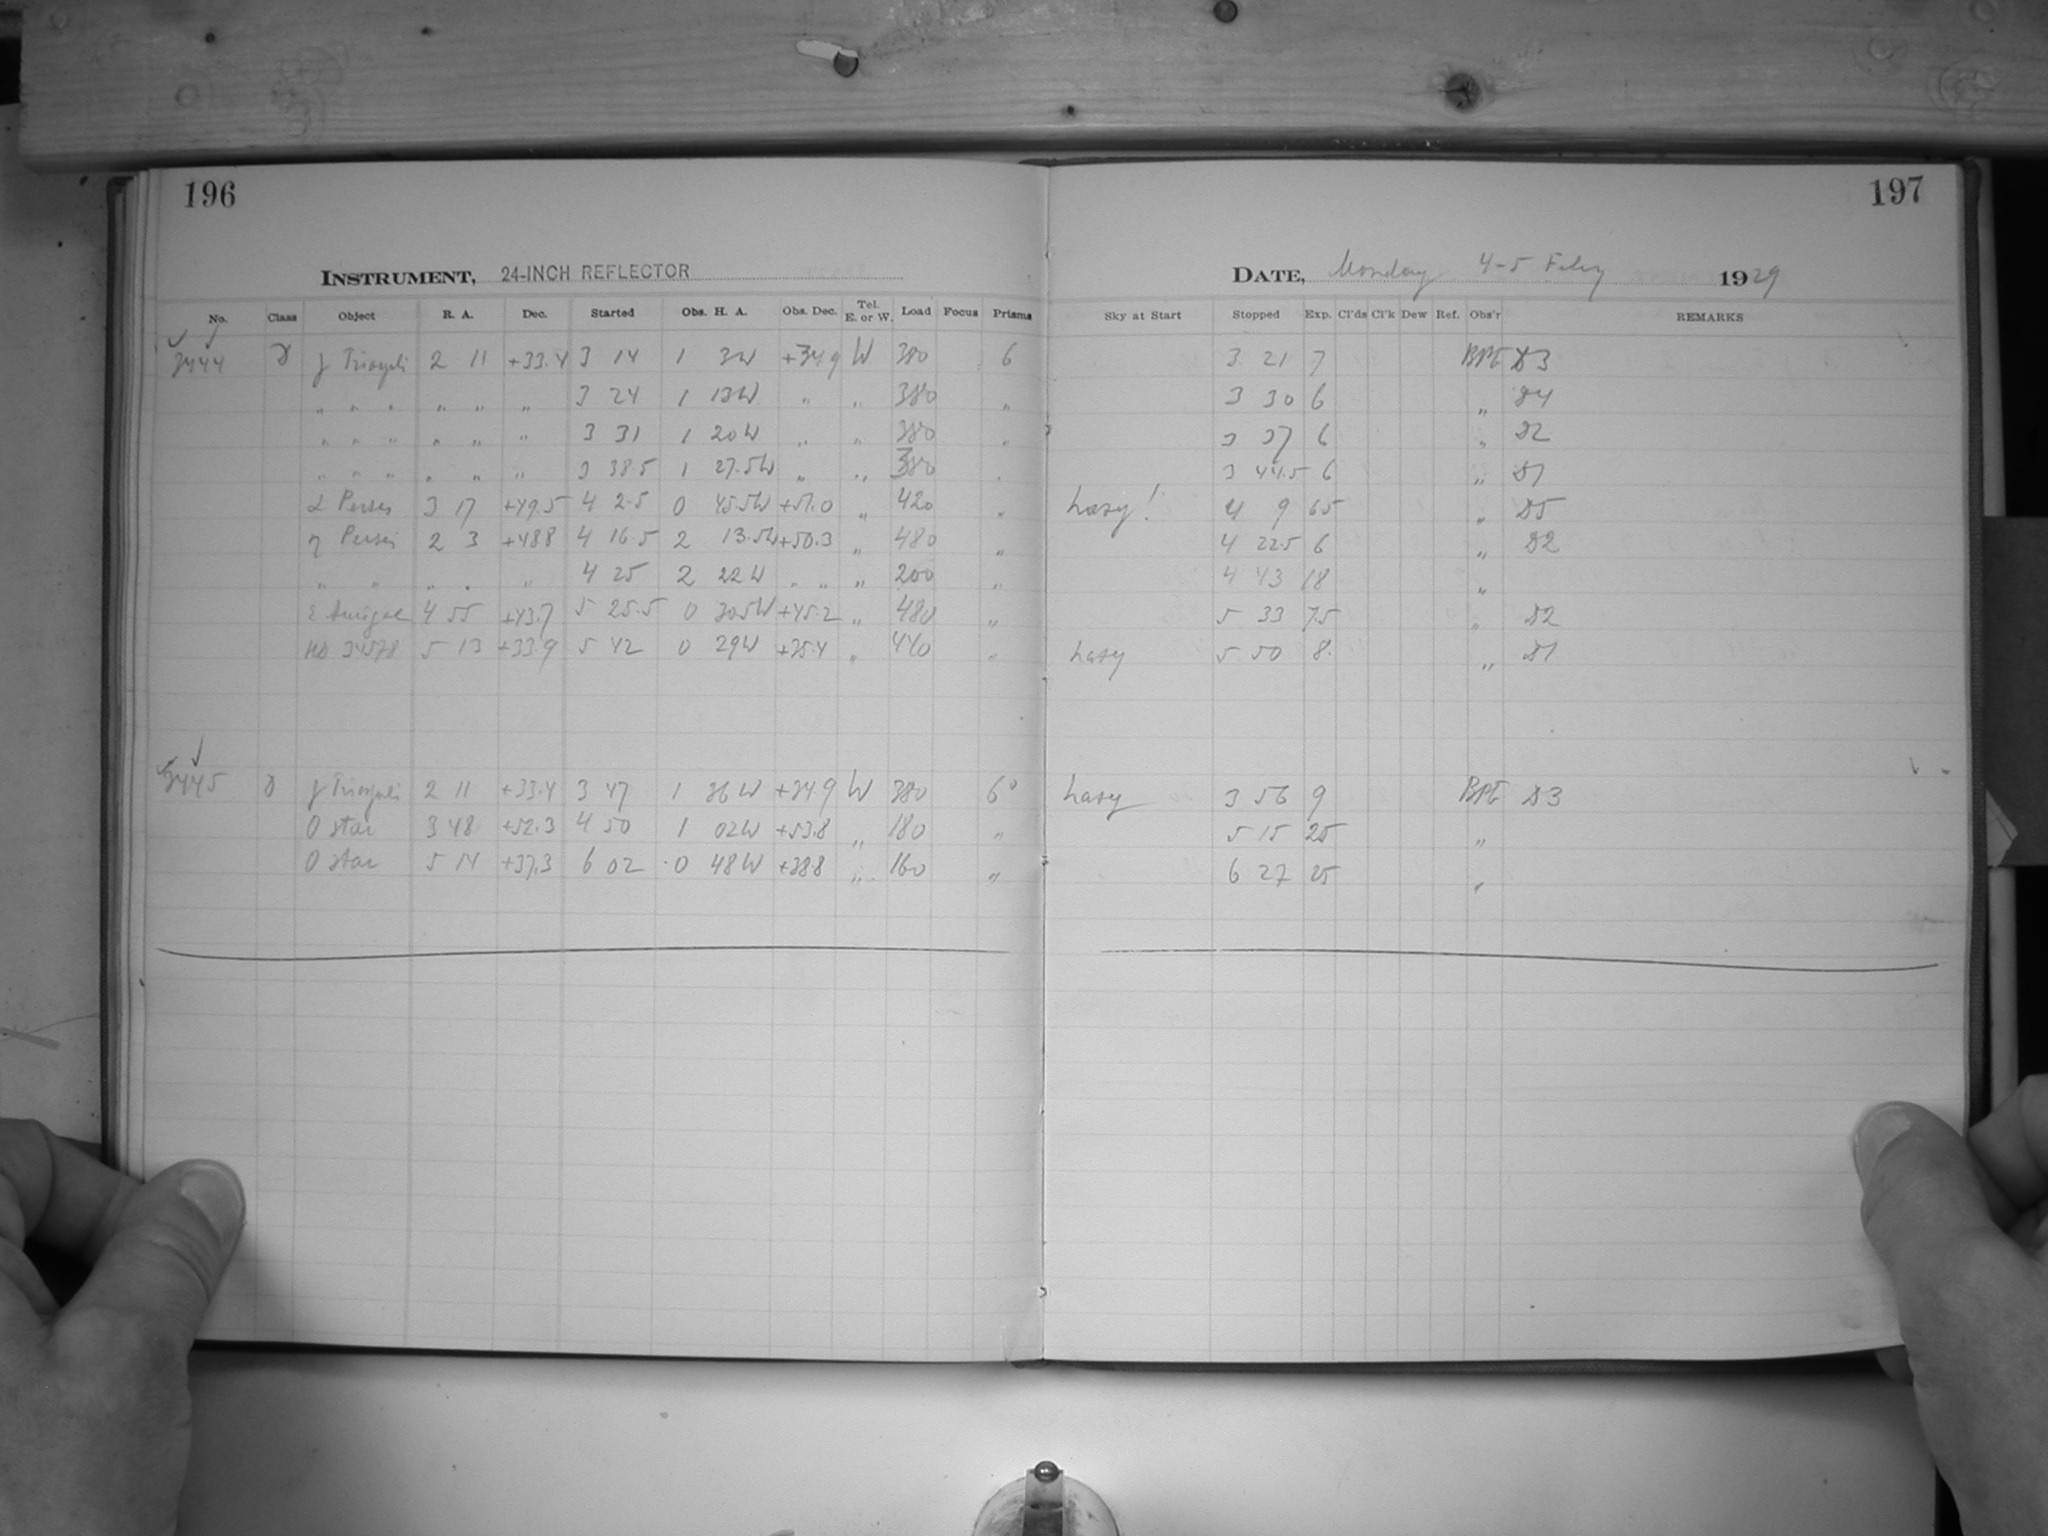 196
197
INSTRUMENT, 24-INCH REFLECTOR
DATE, Monday 4-5 Feby 1929
No. Class Object R. A. Dec. Started Obs. H. A. Obs. Dec. Tel. E. or W. Load Focus Prisms Sky at Start Stopped Exp. Cl'ds Cl'k Dew Ref. Obs'r REMARKS
3444 γ Trianguli 2 11 +33.4 3 14 1 3W +34.9 W 380 6 3 21 7 D3
" " " " " " 3 24 1 13W " " 380 " 3 30 6 " D4
" " " " " " 3 31 1 20W " " 380 " 3 37 6 " D2
" " " " " " 3 38.5 1 27.5W " " 380 " 3 44.5 6 " D1
α Persei 3 17 +49.5 4 2.5 0 45.5W +51.0 " 420 " hazy! 4 9 65 " D5
η Persei 2 3 +48.8 4 16.5 2 13.5W +50.3 " 480 " 4 22.5 6 " D2
" " " " " 4 25 2 22W " " " 200 " 4 43 18 "
ε Aurigae 4 55 +43.7 5 25.5 0 30.5W +45.2 " 480 " 5 33 7.5 " D2
HD 34578 5 13 +33.9 5 42 0 29W +35.4 " 440 " hazy 5 50 8. " D1
3445 γ Trianguli 2 11 +33.4 3 47 1 36W +34.9 W 380 6° hazy 3 56 9 D3
O star 3 48 +52.3 4 50 1 02W +53.8 " 180 " 5 15 25 "
O star 5 14 +37.3 6 02 0 48W +38.8 " 160 " 6 27 25 "